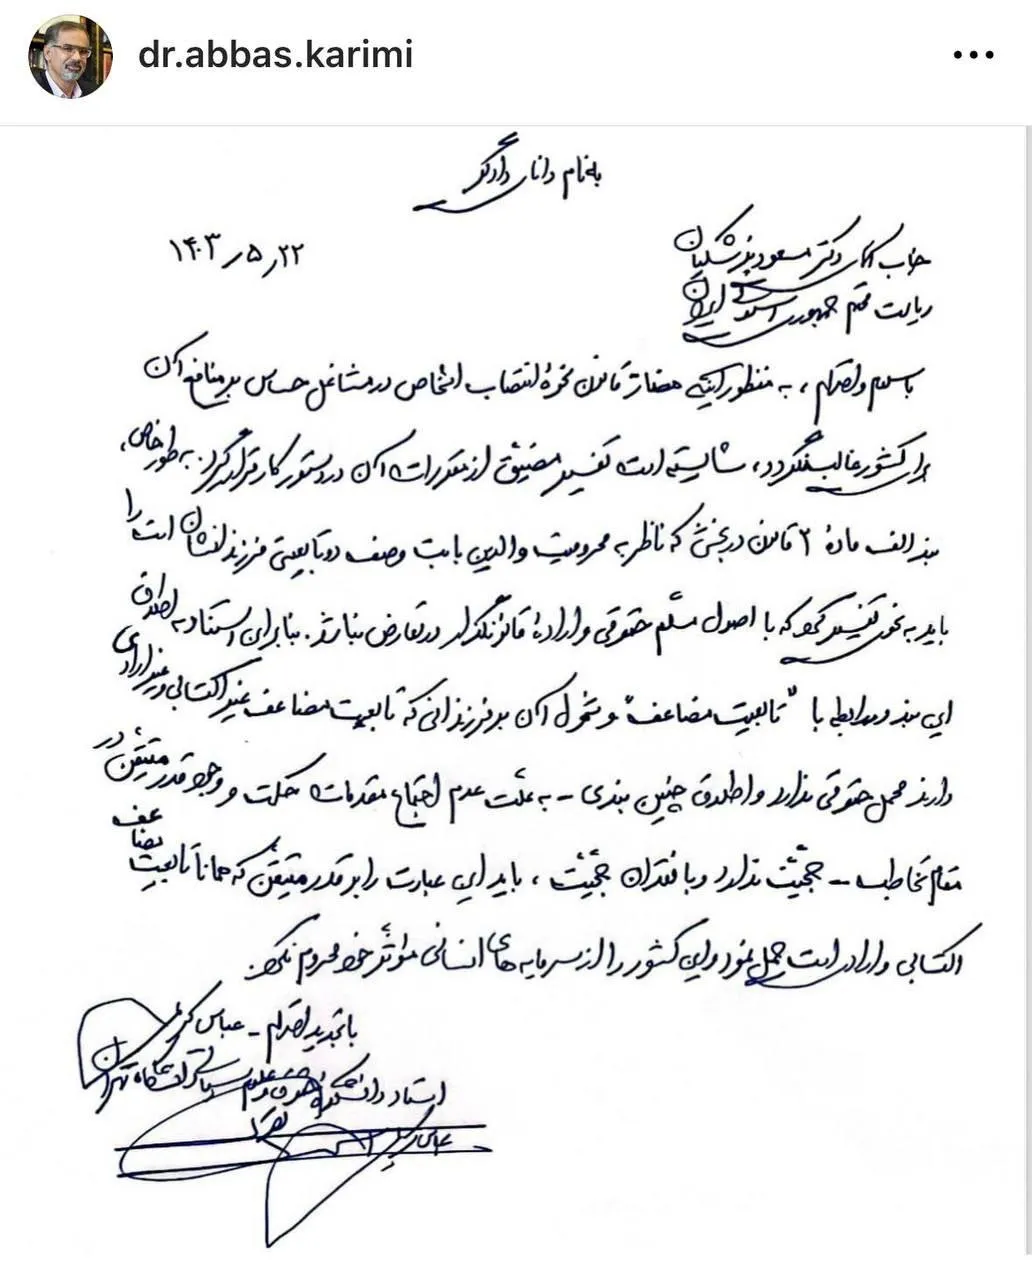 dr.abbas.karimi
به‌نام دانای دادگر
۱۴۰۳٫۵٫۲۲
جناب آقای دکتر مسعود پزشکیان
ریاست محترم جمهوری اسلامی ایران
باسلام و احترام، به منظور اینکه مضار قانون نحوهٔ انتصاب اشخاص در مشاغل حساس بر منافع آن
برای کشور غالب نگردد، شایسته است تفسیر مضیق از مقررات آن در دستور کار قرار گیرد. به‌طور خاص،
بند الف مادهٔ ۲ قانون در بخشی که ناظر به محرومیت والدین بابت وصف دوتابعیتی فرزندانشان است را
باید به نحوی تفسیر کرد که با اصول مسلّم حقوقی و ارادهٔ قانونگذار در تعارض نباشد. بنابراین استناد به اطلاق
این بند در رابطه با "تابعیت مضاعف" و شمول آن بر فرزندانی که تابعیت مضاعف غیر اکتسابی و غیر ارادی
دارند محمل حقوقی ندارد و اطلاق چنین بندی - به علّت عدم اجتماع مقدمات حکمت و وجود قدر متیقّن در
مقام تخاطب - حجیّت ندارد و با فقدان حجیّت، باید این عبارت را بر قدر متیقّن که همانا تابعیت مضاعف
اکتسابی و ارادی است حمل نمود و این کشور را از سرمایه های انسانی مؤثر خود محروم نکرد.
با تجدید احترام - عباس کریمی
استاد دانشکده حقوق و علوم سیاسی دانشگاه تهران